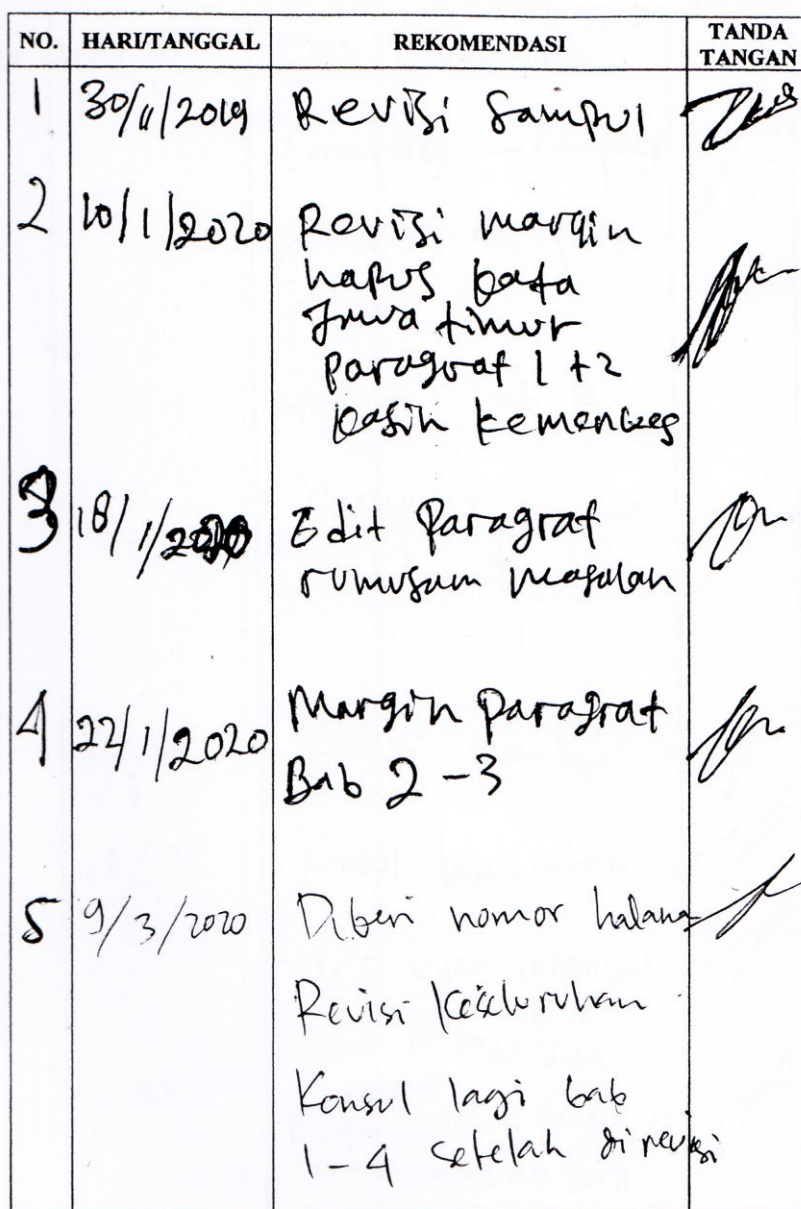 NO. HARI/TANGGAL REKOMENDASI TANDA TANGAN
1 30/11/2019 Revisi Sampul
2 10/1/2020 Revisi margin
hapus kata
Jawa timur
paragraf 1 + 2
kasih kemenkes
3 18/1/2020 Edit Paragraf
rumusan masalah
4 22/1/2020 Margin paragraf
Bab 2 - 3
5 9/3/2020 Diberi nomor halama
Revisi keseluruhan
Konsul lagi bab
1 - 4 setelah direvisi